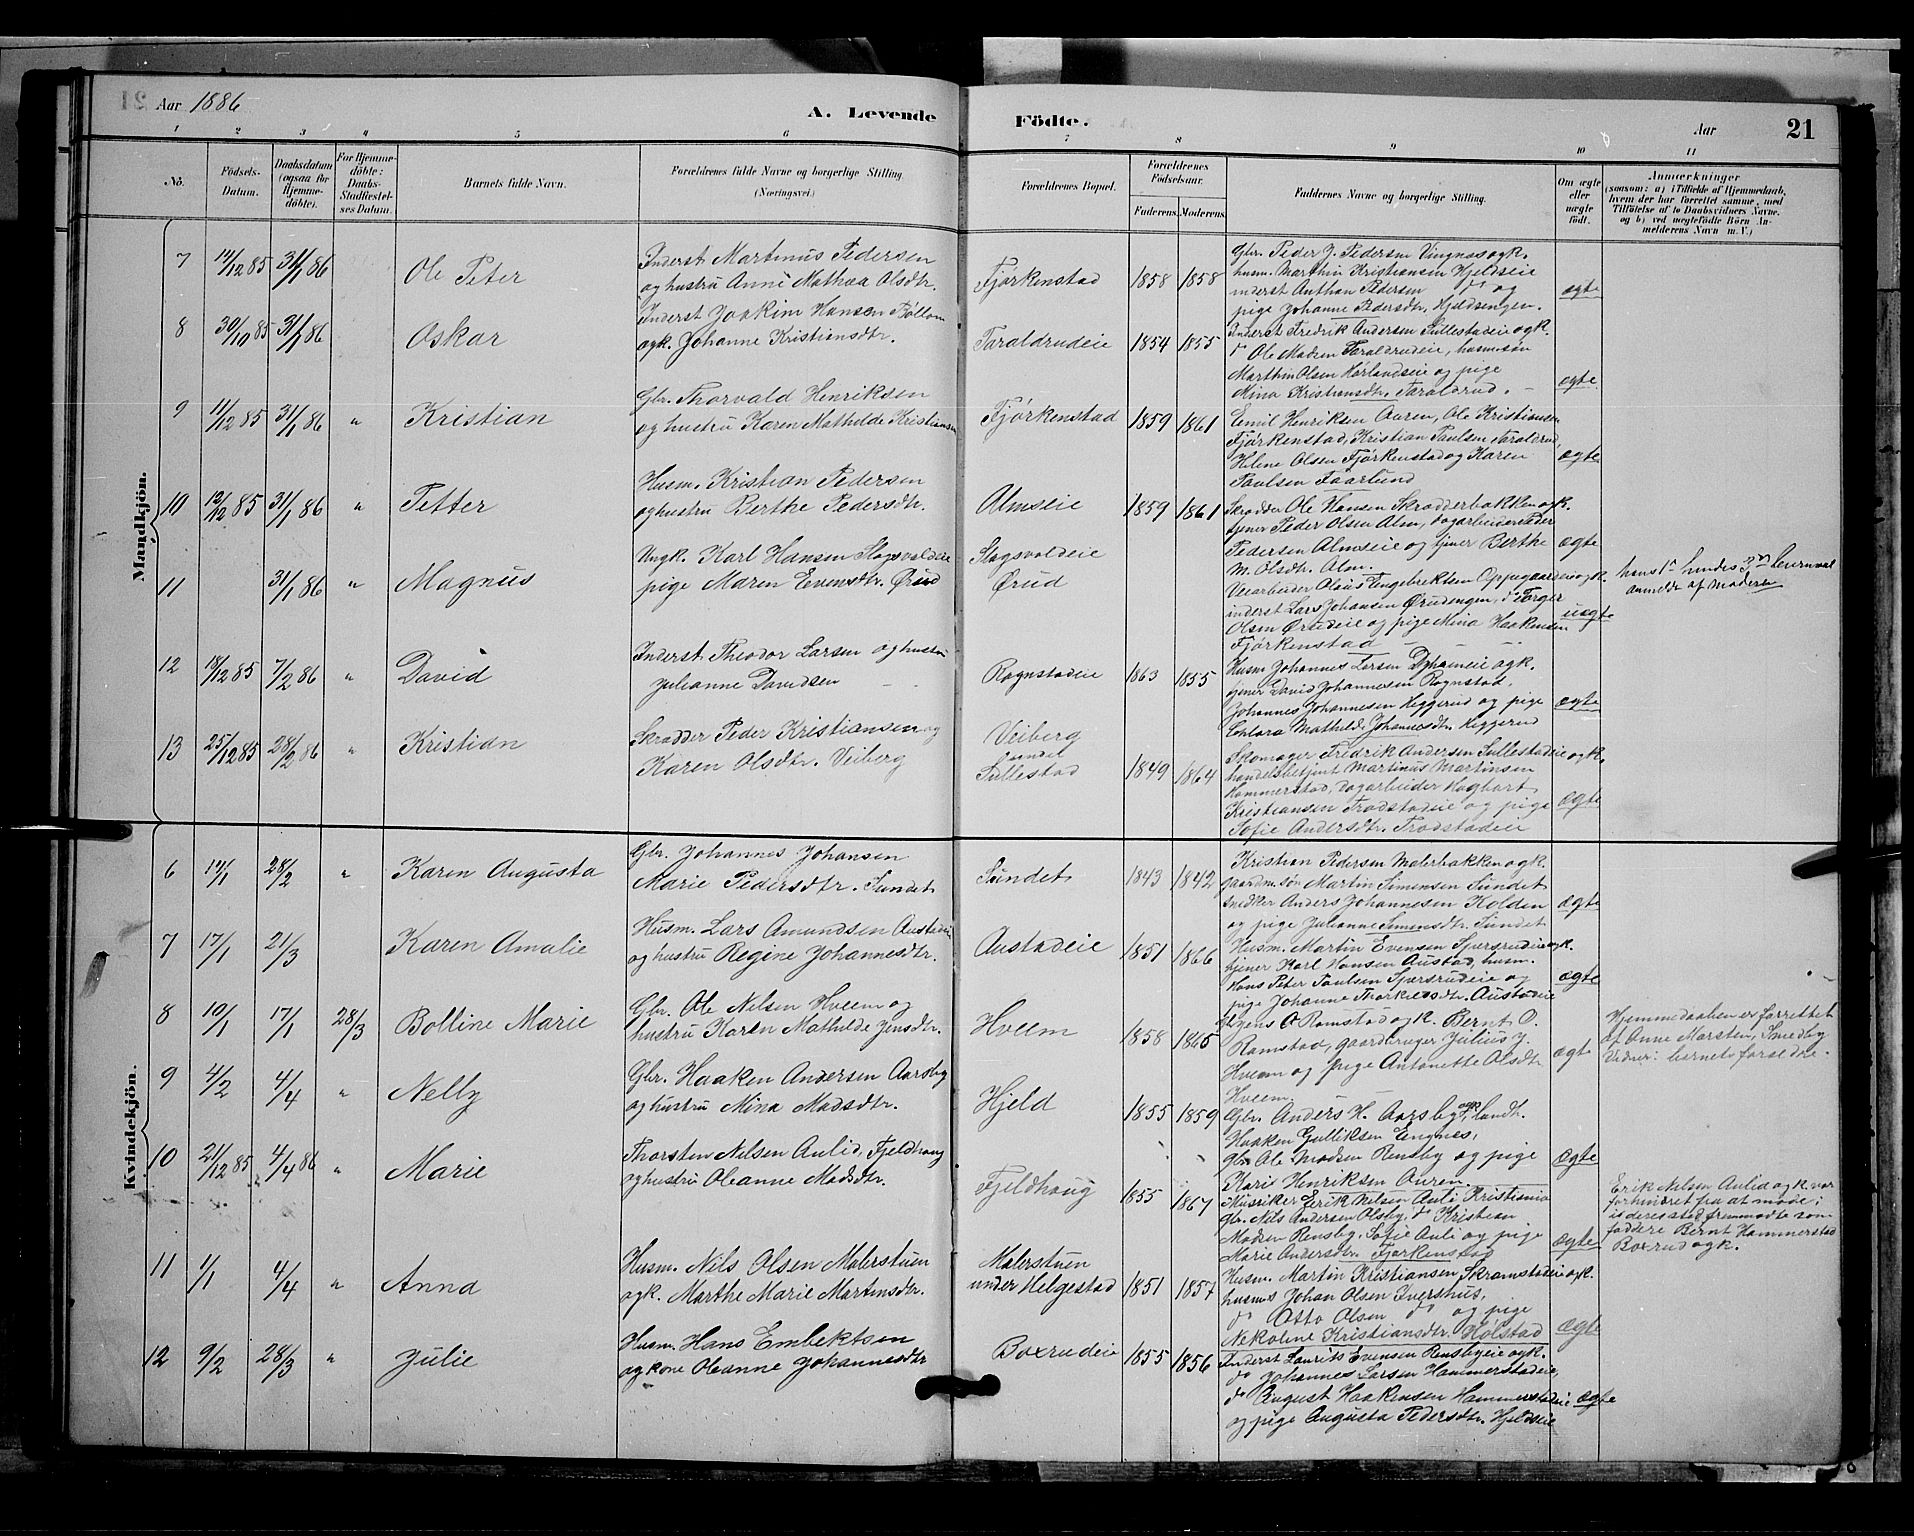 Aar 1886
A. Levende Födte.
Aar
21
1 2 3 4 5 6 7 8 9 10 11
No.
Födsels-Datum.
Daabsdatum (ogsaa for Hjemmedöbte).
For Hjemmedöbte: Daabs-Stadfæstelses Datum.
Barnets fulde Navn.
Forældrenes fulde Navne og borgerlige Stilling (Næringsvei.)
Forældrenes Bopæl.
Forældrenes Fødselsaar.
Faderens. Moderens.
Faddernes Navne og borgerlige Stilling.
Om ægte eller uægte født.
Anmærkninger
(saasom: a) i Tilfælde af Hjemmedaab,
hvem der har forrettet samme, med
Tilföielse af to Daabsvidners Navne,
og b) ved uægtefödte Börn An-
melderens Navn m. V.)
Mandkjön.
7 14/12 85 31/1 86 Ole Peter
Inderst Martinus Pedersen
og hustru Anne Mathea Olsdtr.
Fjørkenstad 1858 1858
Gbr. Peder J. Pedersen Vingnes ogk.
husm. Marthin Kristiansen Hjeldseie
inderst Anthon Pedersen do og
pige Johanne Pedersdtr. Hjeldsengen.
ægte
8 30/10 85 31/1 86 Oskar
Inderst Joakim Hansen
ogk. Johanne Kristiansdtr.
Taraldrudeie 1854 1855
Inderst Fredrik Andersen Sullestadeie ogk.
Ole Madsen Taraldrudeie, husms. søn
Marthin Olsen Hørlandseie og pige
Mina Kristiansdtr. Taraldrud.
ægte
9 11/12 85 31/1 86 " Kristian
Gbr. Thorvald Henriksen
og hustru Karen Mathilde Kristiansen
Fjørkenstad 1859 1861
Emil Henriksen Auren, Ole Kristiansen
Fjørkenstad, Kristian Paulsen Taraldrud,
Helene Olsen Fjørkenstad og Karen
Paulsen Faarlund
ægte
10 12/12 85 31/1 86 " Petter
Husm. Kristian Pedersen
og hustru Berthe Pedersdtr.
Almseie 1859 1861
Skrædder Ole Hansen Skrædderbakken ogk.
tjener Peder Olsen Alm, dagarbeider Peder
Pedersen Almseie og tjener Berthe
M. Olsdtr. Alm.
ægte
11 31/1 86 " Magnus
Ungk. Karl Hansen Slagsvoldeie
pige Maren Evensdtr. Ørud
Slagsvoldeie
Ørud
Veiarbeider Olaus Engebretsen Oppegaardeie ogk.
inderst Lars Johansen Ørudengen, do Torger
Olsen Ørudeie og pige Mina Haakensen
Fjørkenstad
uægte
hans 1ste hendes 3die leiermaal
anmeldt af moderen
12 18/12 85 7/2 86 " David
Inderst Theodor Larsen og hustru
Julianne Davidsen
Rognstadeie 1863 1855
Husm. Johannes Larsen ogk.
tjener David Johannesen Rognstad,
Johannes Johannesen Heggerud og pige
Chlara Mathilde Johannesdtr. Heggerud
ægte
13 25/12 85 28/2 86 " Kristian
Skrædder Peder Kristiansen og
Karen Olsdtr. Veiberg
Veiberg
under
Sullestad 1849 1864
Skomager Fredrik Andersen Sullestadeie ogk.
handelsbetjent Martinus Martinsen
Hammerstad, dagarbeider Hagbart
Kristiansen Trodstadeie og pige
Sofie Andersdtr. Trodstadeie
ægte
Kvindekjön.
6 14/1 28/2 " Karen Augusta
Gbr. Johannes Johansen
Marie Pedersdtr. Sundet
Sundet 1843 1842
Kristian Pedersen Malerbakken ogk.
gaardm. søn Martin Simensen Sundet
snedker Anders Johannesen Kolden
og pige Julianne Simensdtr. Sundet
ægte
7 17/1 21/3 Karen Amalie
Husm. Lars Amundsen Austadeie
og hustru Regine Johannesdtr.
Austadeie 1851 1866
Husm. Martin Evensen Sperrudeie ogk.
tjener Karl Hansen Austad, husm.
Hans Peter Paulsen Sperrudeie og
pige Johanne Thorkildsdtr. Austadeie
ægte
8 10/1 17/1 28/3 Bolline Marie
Gbr. Ole Nilsen Hveem og
hustru Karen Mathilde Jensdtr.
Hveem 1858 1865
Gbr. Jens O. Ramstad ogk. Bernt O.
Ramstad, gaardbruger Julius J.
Hveem og Pige Antonette Olsdtr.
Hveem
ægte
Hjemmedaaben er forrettet
af Anne Marsten, Smedby
Vidner: barnets forældre.
9 4/2 4/4 " Nelly
Gbr. Haaken Andersen Aarsby
og hustru Mina Madsdtr.
Hjeld 1855 1859
Gbr. Anders H. Aarsby ogk, landh.
Haaken Gulliksen Engnes,
gbr. Ole Madsen Rensby og pige
Kari Henriksen Auren.
ægte
10 21/12 85 4/4 86 " Marie
Thorsten Nilsen Aulid, Fjeldhaug
og hustru Oleanne Madsdtr.
Fjeldhaug 1855 1867
Musiker Eerik Nilsen Auli Kristiania
gbr. Nils Andersen Olsby, do Kristian
Madsen Rensby, Sofie Auli og pige
Marie Andersdtr. Fjørkenstad
ægte
Erik Nilsen Aulid ogk. var
forhindret fra at møde;
i deres sted fremmødte som
faddere Bernt Hammerstad
Boxrud ogk.
11 1/1 4/4 " Anna
Husm. Nils Olsen Malerstuen
ogk. Marthe Marie Martinsdtr.
Malerstuen
under Helgestad 1851 1857
Husm. Martin Kristiansen Skramstadeie ogk.
husms. Johan Olsen Ivershus,
do Otto Olsen do og pige
Nekoline Kristiansdtr. Holstad
ægte
12 9/2 28/3 " Julie
Husm. Hans Embektsen
og kone Oleanne Johannesdtr
Boxrudeie 1855 1856
Inderst Laurits Evensen Rensbyeie ogk.
do Johannes Larsen Hammerstadeie,
do August Haakensen Hammerstadeie
og pige Augusta Pedersdtr. Hjeldseie
ægte